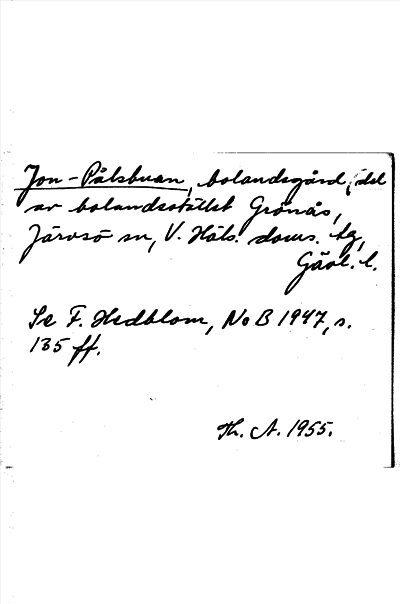 Jon-Pålsbuan, bolandsgård, del
av bolandsstället Grönås,
Järvsö sn, V. Häls. doms. tg,
Gävl. l.
Se F. Hedblom, NoB 1947, s.
135 ff.
Th. A. 1955.